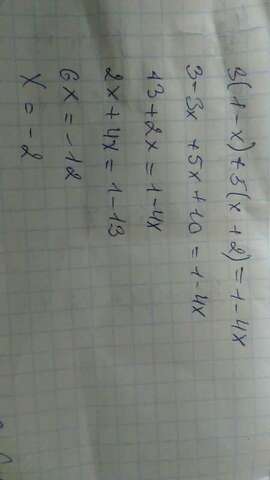 3(1-x)+5(x+2)=1-4x
3-3x+5x+10=1-4x
13+2x=1-4x
2x+4x=1-13
6x=-12
x=-2